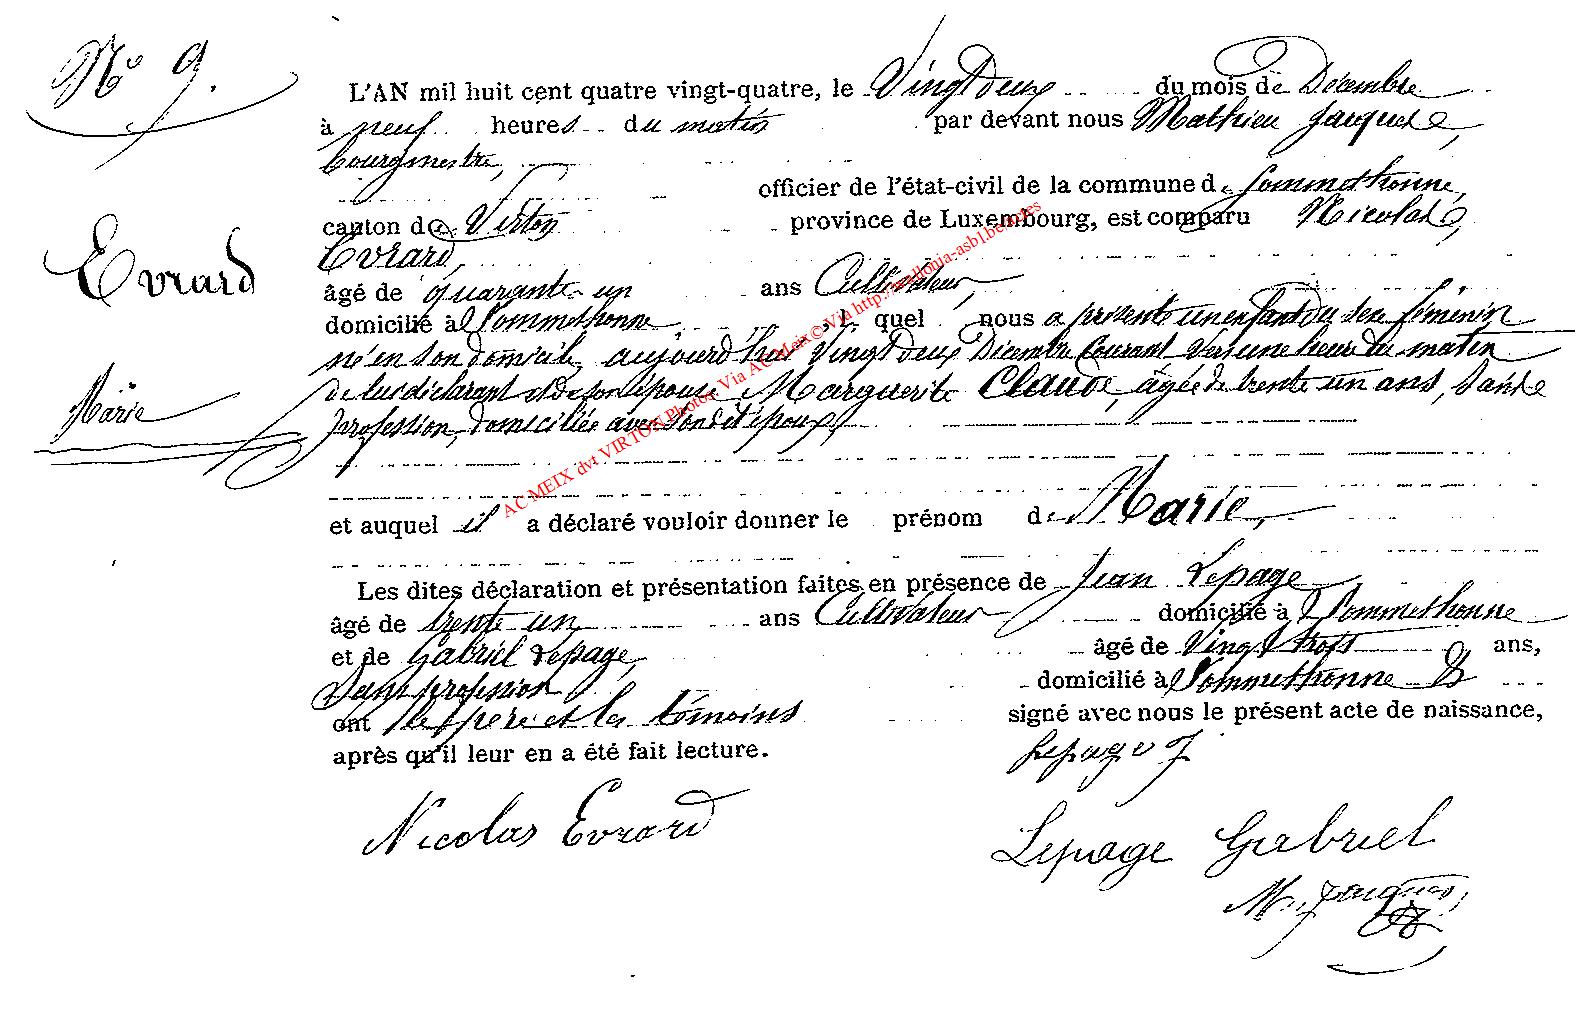 No 9.
L'AN mil huit cent quatre vingt-quatre, le Vingt deux du mois de Décembre
à neuf heures du matin par devant nous Mathieu Jacques,
bourgmestre,
officier de l'état-civil de la commune de Sommethonne,
canton de Virton province de Luxembourg, est comparu Nicolas,
Evrard
Evrard,
âgé de quarante un ans Cultivateur,
domicilié à Sommethonne, l quel nous a présenté un enfant du sexe féminin
né en son domicile, aujourd'hui Vingt deux Décembre courant vers une heure du matin
de lui déclarant et de son épouse Marguerite Claude, âgée de trente un ans, Sans
Marie
profession, domiciliée avec son dit époux,
et auquel il a déclaré vouloir donner le prénom de Marie,
Les dites déclaration et présentation faites en présence de Jean Lepage
âgé de trente un ans Cultivateur domicilié à Sommethonne
et de Gabriel Lepage, âgé de Vingt trois ans,
Sans profession domicilié à Sommethonne &
ont le père et les témoins signé avec nous le présent acte de naissance,
après qu'il leur en a été fait lecture.
Lepage J
Nicolas Evrard
Lepage Gabriel
M. Jacques
AC MEIX dvt VIRTON Photos Via AC Meix© Via